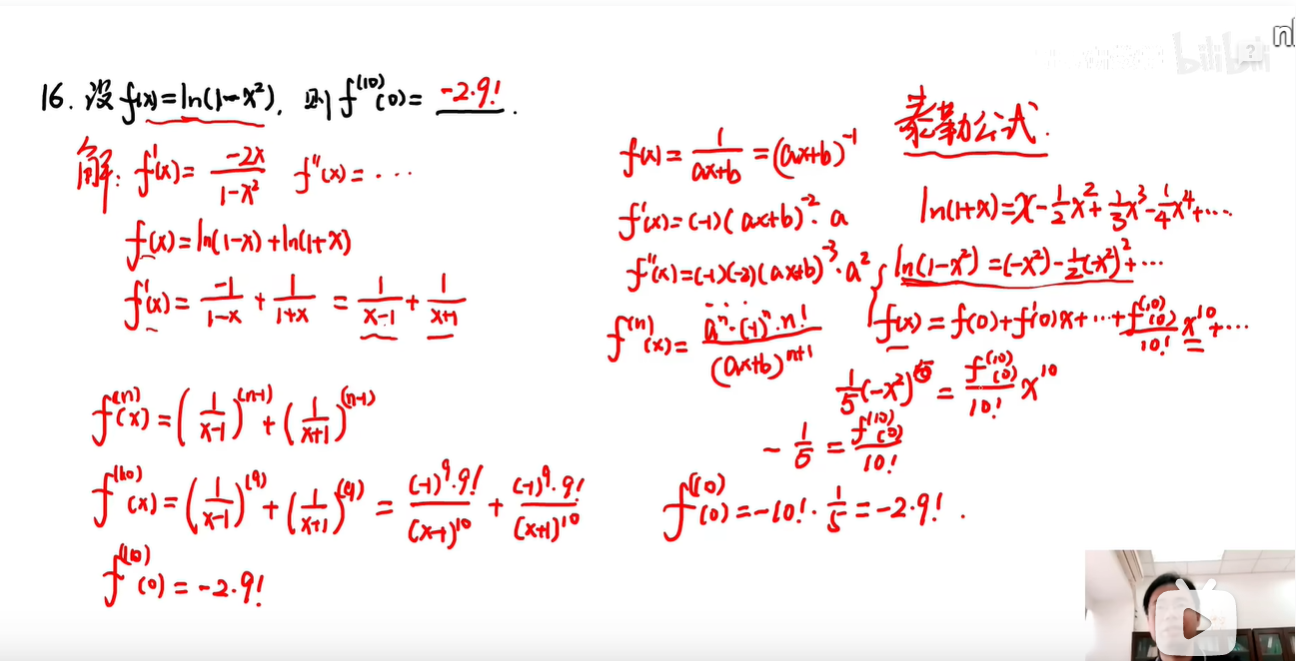 16. 设 f(x)=ln(1-x²), 则 f⁽¹⁰⁾(0)= -2·9! .
解: f'(x)= \frac{-2x}{1-x²} f''(x)=···
f(x)=ln(1-x)+ln(1+x)
f'(x)= \frac{-1}{1-x} + \frac{1}{1+x} = \frac{1}{x-1} + \frac{1}{x+1}
f⁽ⁿ⁾(x)=(\frac{1}{x-1})⁽ⁿ⁻¹⁾+(\frac{1}{x+1})⁽ⁿ⁻¹⁾
f⁽¹⁰⁾(x)=(\frac{1}{x-1})⁽⁹⁾+(\frac{1}{x+1})⁽⁹⁾ = \frac{(-1)⁹·9!}{(x-1)¹⁰} + \frac{(-1)⁹·9!}{(x+1)¹⁰}
f⁽¹⁰⁾(0)=-2·9!
f(x)= \frac{1}{ax+b} =(ax+b)⁻¹
f'(x)=(-1)(ax+b)⁻²·a
f''(x)=(-1)(-2)(ax+b)⁻³·a²
···
f⁽ⁿ⁾(x)= \frac{aⁿ·(-1)ⁿ·n!}{(ax+b)ⁿ⁺¹}
泰勒公式.
ln(1+x)=x-\frac{1}{2}x²+\frac{1}{3}x³-\frac{1}{4}x⁴+····
{ln(1-x²)=(-x²)-\frac{1}{2}(-x²)²+···
f(x)=f(0)+f'(0)x+···+\frac{f⁽¹⁰⁾(0)}{10!}x¹⁰+···
\frac{1}{5}(-x²)⁵ = \frac{f⁽¹⁰⁾(0)}{10!}x¹⁰
-\frac{1}{5} = \frac{f⁽¹⁰⁾(0)}{10!}
f⁽¹⁰⁾(0)=-10!·\frac{1}{5}=-2·9! .
bilibili